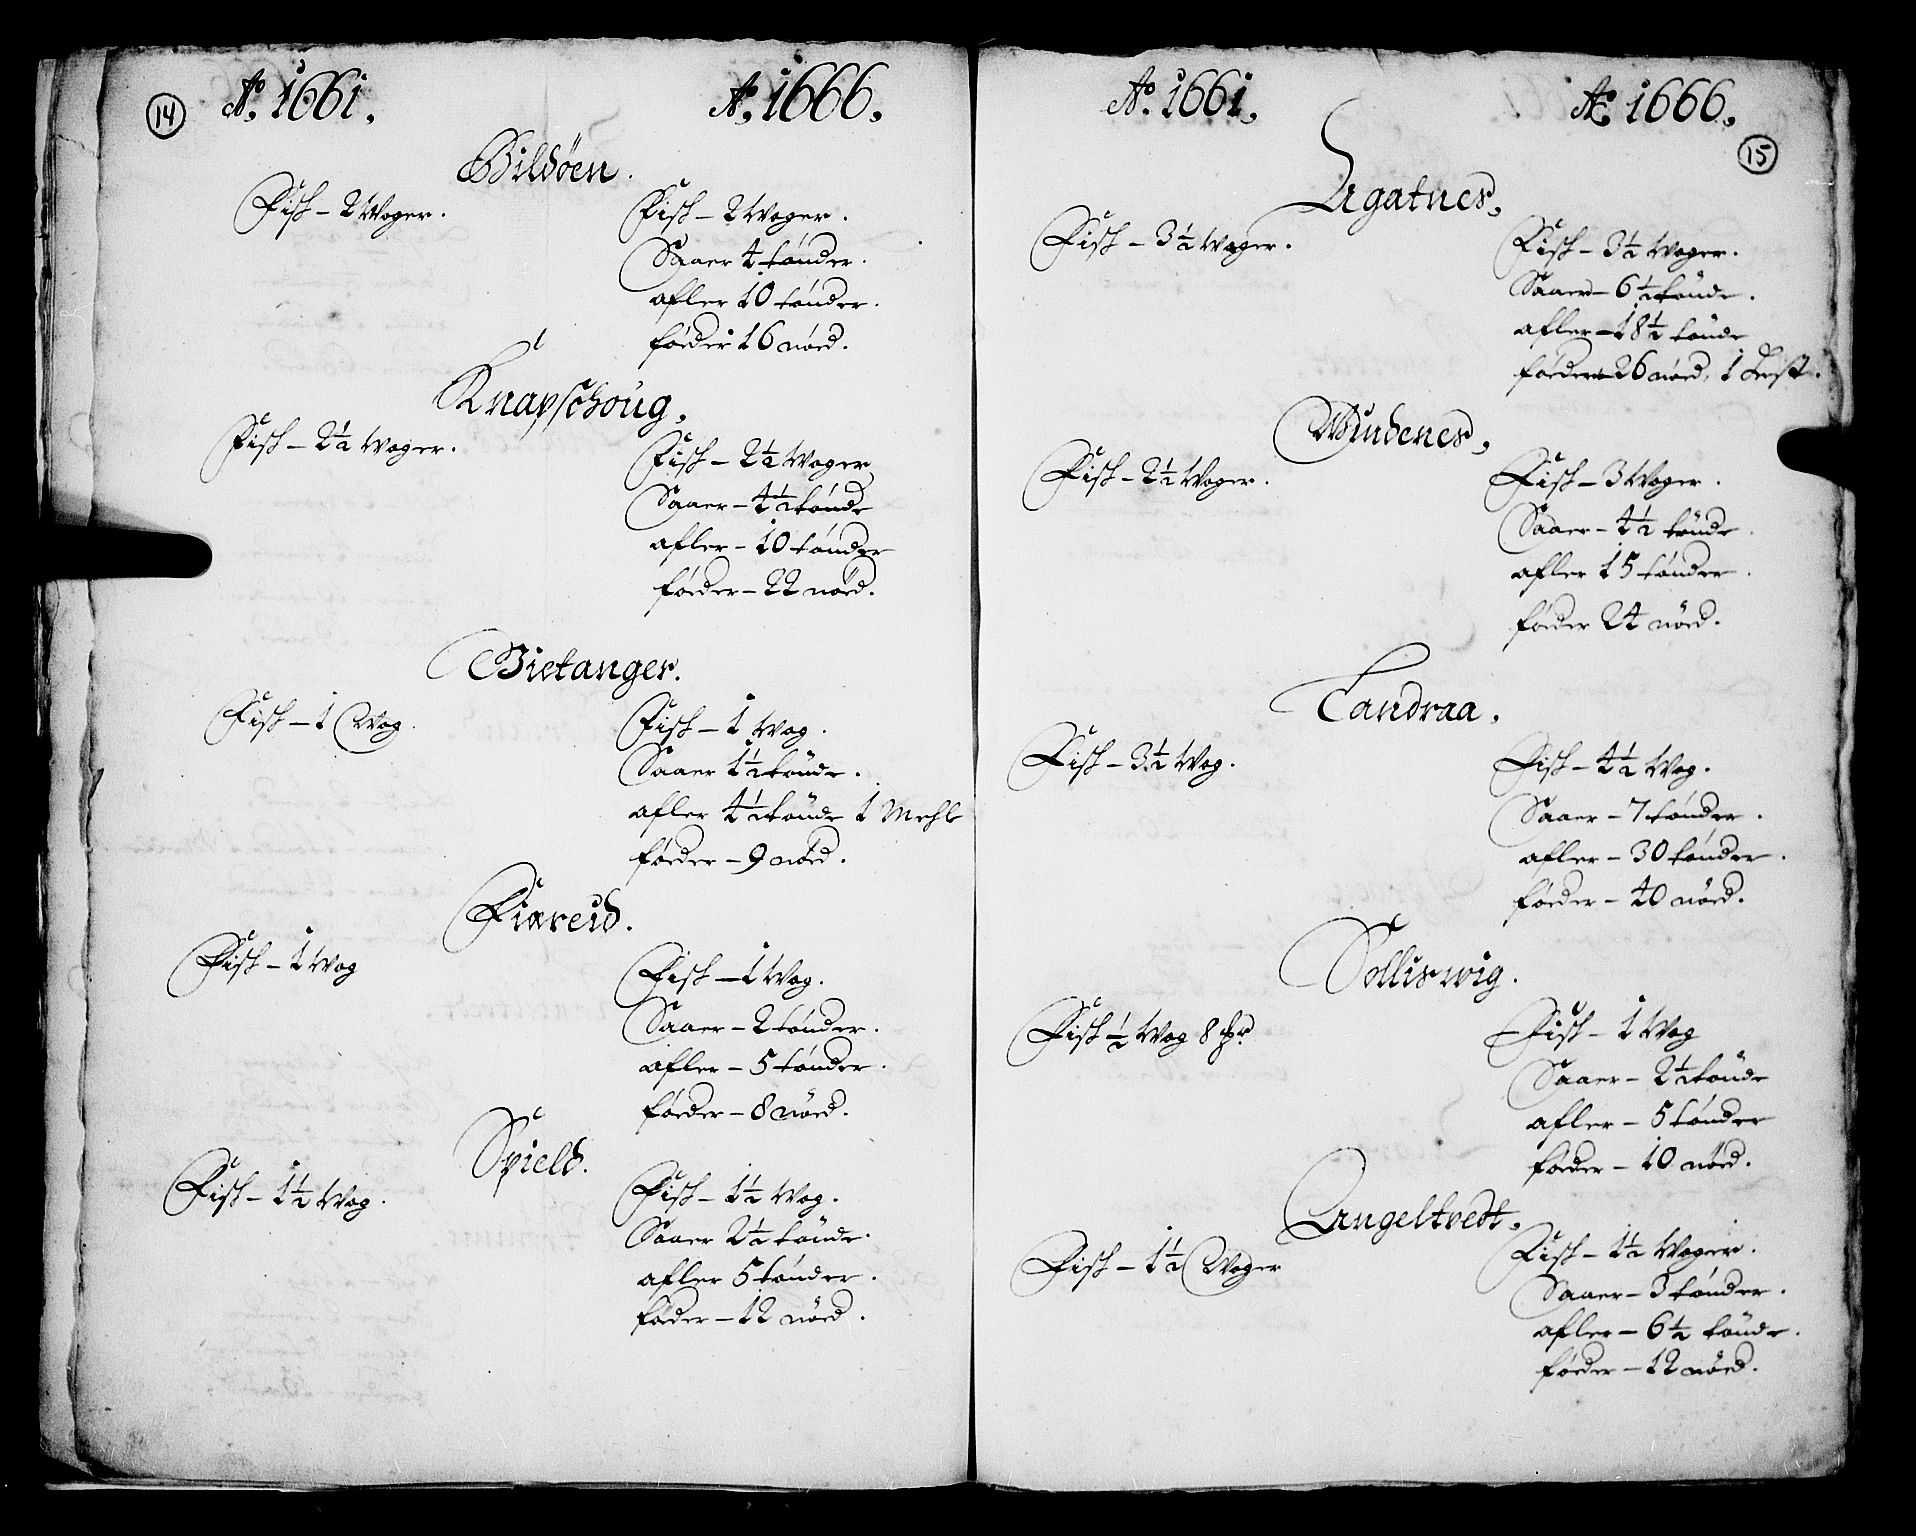 14
Ao. 1661. Ao. 1666.
Bildöen.
Fisk – 2 Woger.
Fisk – 2 Woger.
Saaer 4 tönder.
afler 10 tönder.
föeder 16 nöed.
Knapschoug.
Fisk – 2½ Woger.
Fisk – 2½ Woger
Saaer – 4½ tönde
afler – 10 tönder
föeder – 22 nöed.
Bietanger.
Fisk – 1 Wog.
Fisk – 1 Wog.
Saaer 1½ tönde.
afler 4½ tönde 1 Mehle
föeder – 9 nöed.
Fiæreid.
Fisk – 1 Wog
Fisk – 1 Wog.
Saaer – 2 tönder.
afler – 5 tönder.
föeder – 8 nöed.
Spield.
Fisk – 1½ Wog.
Fisk – 1½ Wog.
Saaer 2½ tönde.
afler 5 tönder.
föder – 12 nöed.
Ao. 1661. Ao 1666.
15
Agatnes.
Fisk – 3½ Woger.
Fisk – 3½ Woger.
Saaer – 6½ tönde.
afler – 18½ tönde
föeder 26 nöed, 1 Hest.
Windenes.
Fisk – 2½ Woger.
Fisk – 3 Woger.
Saaer – 4½ tönde.
afler 15 tönder.
föder 24 nöed.
Tandraa.
Fisk – 3½ Wog.
Fisk – 4½ Wog.
Saaer – 7 tönder.
afler – 30 tönder.
föeder – 40 nöed.
Solliswig.
Fisk ½ Wog 8
Fisk – 1 Wog
Saaer – 2½ tönde
afler – 5 tönder
föeder – 10 nöed.
Angeltvedt.
Fisk – 1½ Woger
Fisk – 1½ Woger.
Saaer – 3 tönder.
afler – 6½ tönde.
föeder – 12 nöed.